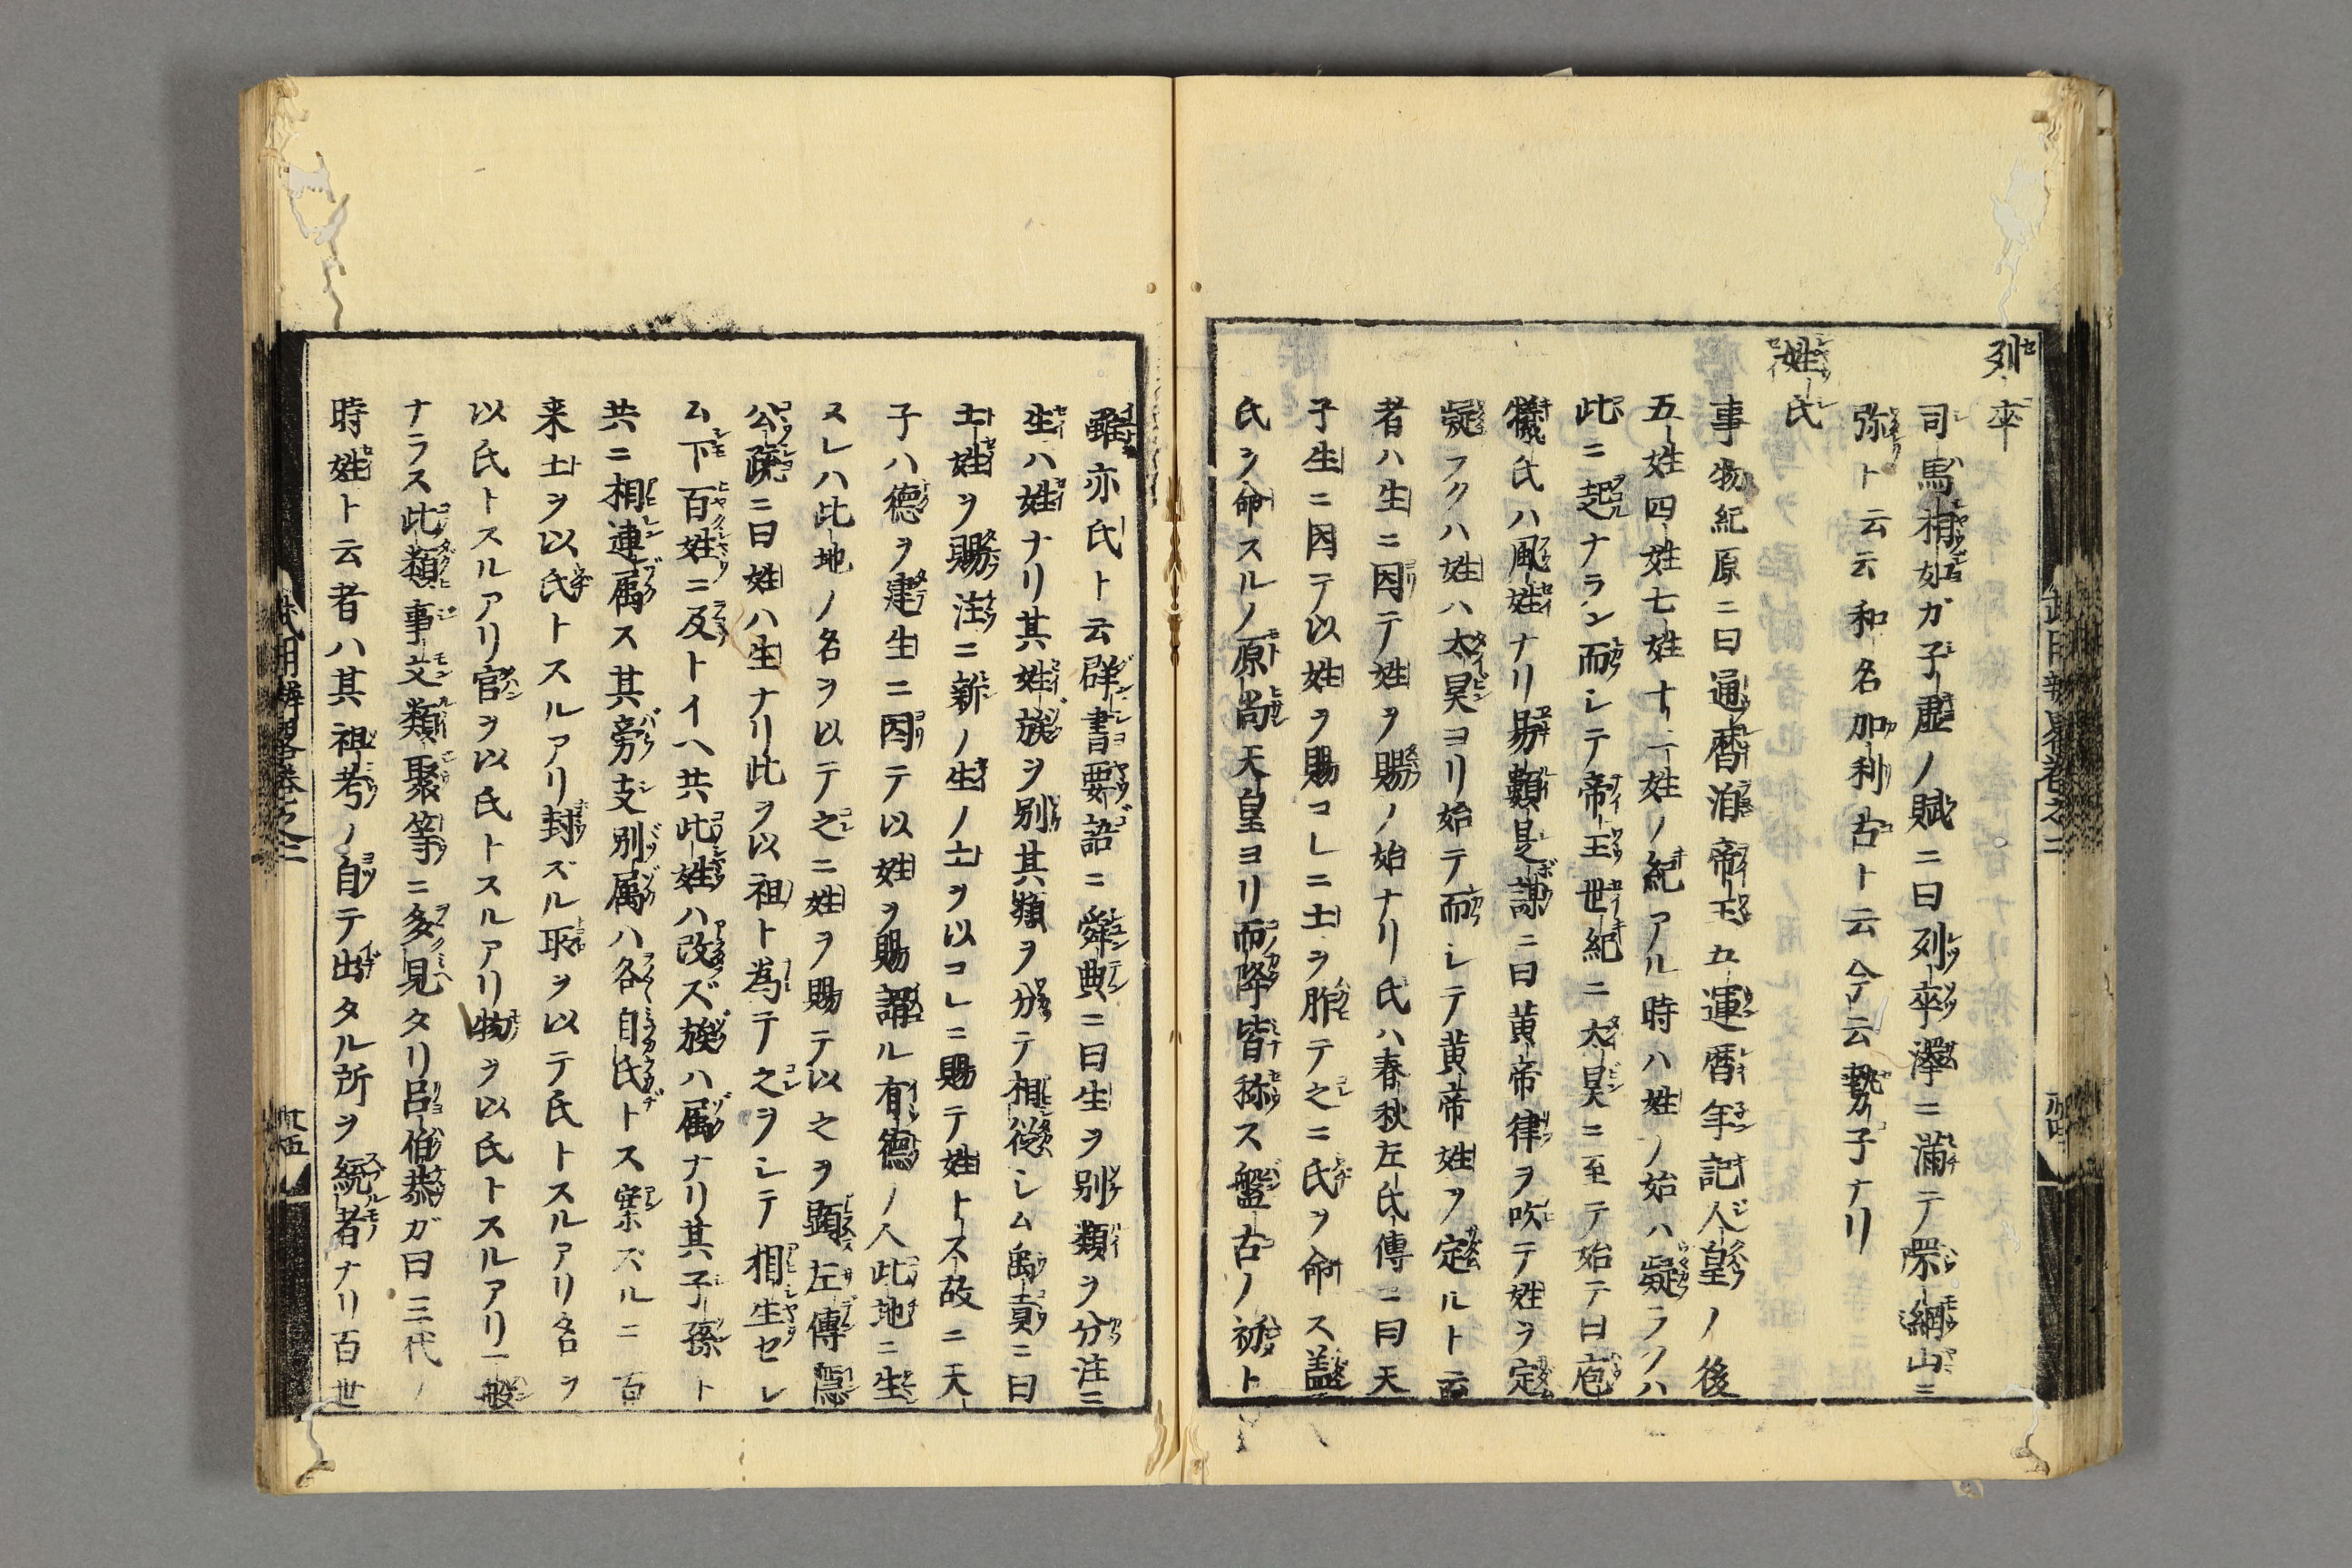 列卒
司馬相如ガ子虚ノ賦ニ曰列卒澤ニ滿テ罘網山ニ
弥ト云云和名加利古ト云今云勢子ナリ
姓氏
事物紀原ニ曰通暦洎帝王五運暦年記人皇ノ後
五姓四姓七姓十二姓ノ紀アル時ハ姓ノ始ハ疑ラクハ
此ニ起ナラン而シテ帝王世紀ニ太昊ニ至テ始テ曰庖
犧氏ハ風姓ナリ易類是謀ニ曰黄帝律ヲ吹テ姓ヲ定
疑フクハ姓ハ太昊ヨリ始テ而シテ黄帝姓ヲ定ルト云
者ハ生ニ因テ姓ヲ賜ノ始ナリ氏ハ春秋左氏傳ニ曰天
子生ニ因テ以姓ヲ賜コレニ土ヲ胙テ之ニ氏ヲ命ス蓋
氏ヲ命スルノ原尚天皇ヨリ而降皆称ス盤古ノ初ト
雖亦氏ト云群書要語ニ舜典ニ曰生ヲ別類ヲ分注ニ
生ハ姓ナリ其姓族ヲ別其類ヲ分テ相從シム禹貢ニ曰
土姓ヲ賜注ニ新ノ生ノ土ヲ以コレニ賜テ姓トス故ニ天
子ハ德ヲ建生ニ因テ以姓ヲ賜謂ル有德ノ人此地ニ生
スレハ此地ノ名ヲ以テ之ニ姓ヲ賜テ以之ヲ顕左傳隱
公疏ニ曰姓ハ生ナリ此ヲ以祖ト為テ之ヲシテ相生セレ
ム下百姓ニ及トイヘ共此姓ハ改ズ族ハ属ナリ其子孫ト
共ニ相連属ス其旁支別属ハ各自氏トス案ズルニ百
来土ヲ以氏トスルアリ封ズル取ヲ以テ氏トスルアリ名ヲ
以氏トスルアリ官ヲ以氏トスルアリ物ヲ以氏トスルアリ一般
ナラス此類事文類聚等ニ多見タリ呂伯恭ガ曰三代ノ
時姓ト云者ハ其祖考ノ自テ出タル所ヲ統者ナリ百世
武用辨略巻之二